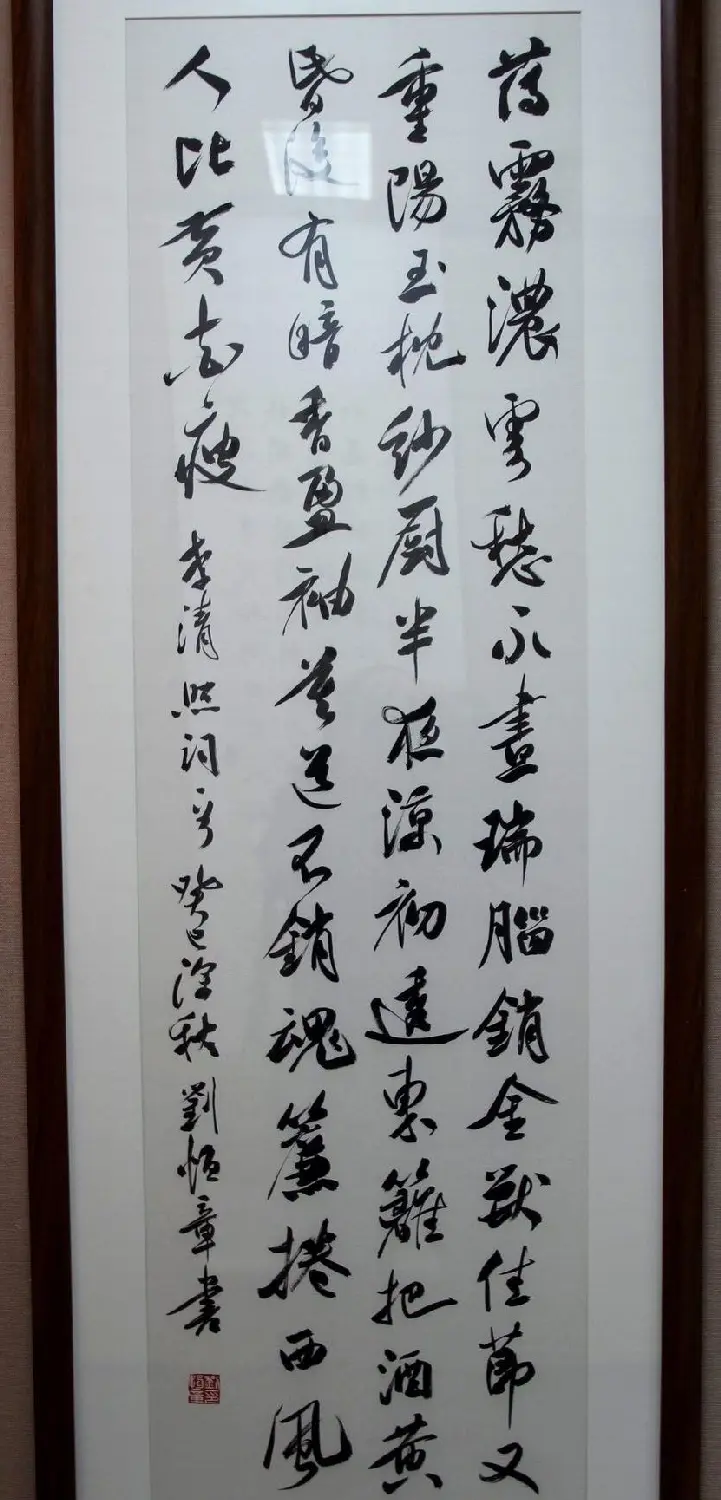 薄霧濃雲愁永晝瑞腦銷金獸佳節又
重陽玉枕紗厨半夜涼初透東籬把酒黄
昏後有暗香盈袖莫道不銷魂簾捲西風
人比黄花瘦 李清照詞一首 癸巳深秋 劉恒章書